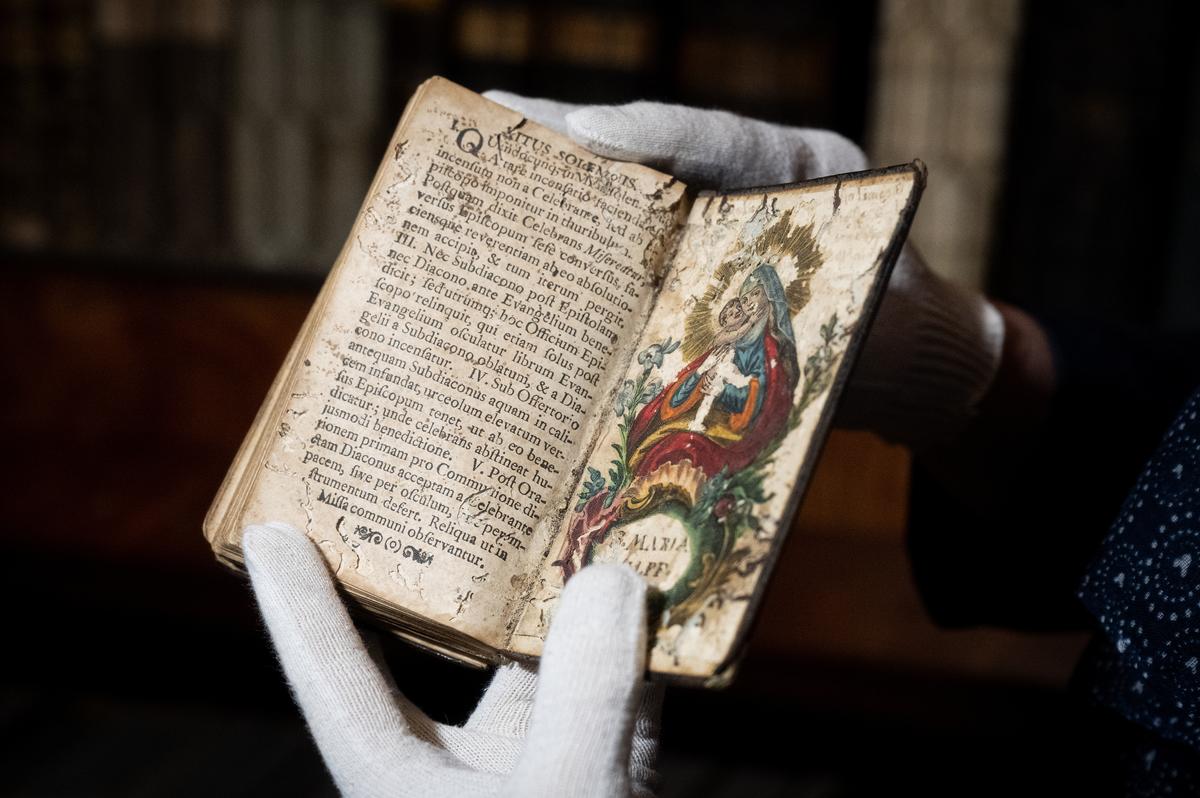 RITUS SOLEMNIS
incensum non a Celebrante, sed ab
piscopo imponitur in thuribulum.
Postquam dixit Celebrans Misereatur
versus Episcopum sese conversus, fa-
ciensque reverentiam ab eo absolutio-
nem accipit, & tum iterum pergit.
III. Nec Subdiacono post Epistolam,
nec Diacono ante Evangelium bene-
dicit; sed utrumq; hoc Officium Epi-
scopo relinquit, qui etiam solus post
Evangelium osculatur librum Evan-
gelii a Subdiacono oblatum, & a Dia-
cono incensatur. IV. Sub Offertorio
antequam Subdiaconus aquam in cali-
cem infundat, urceolum elevatum ver-
sus Episcopum tenet, ut ab eo bene-
dicatur; unde celebrans abstineat hu-
jusmodi benedictione. V. Post Ora-
tionem primam pro Communione di-
ctam Diaconus acceptam a Celebrante
pacem, sive per osculum, sive per in-
strumentum defert. Reliqua ut in
Missa communi observantur.
(o)
S. MARIA